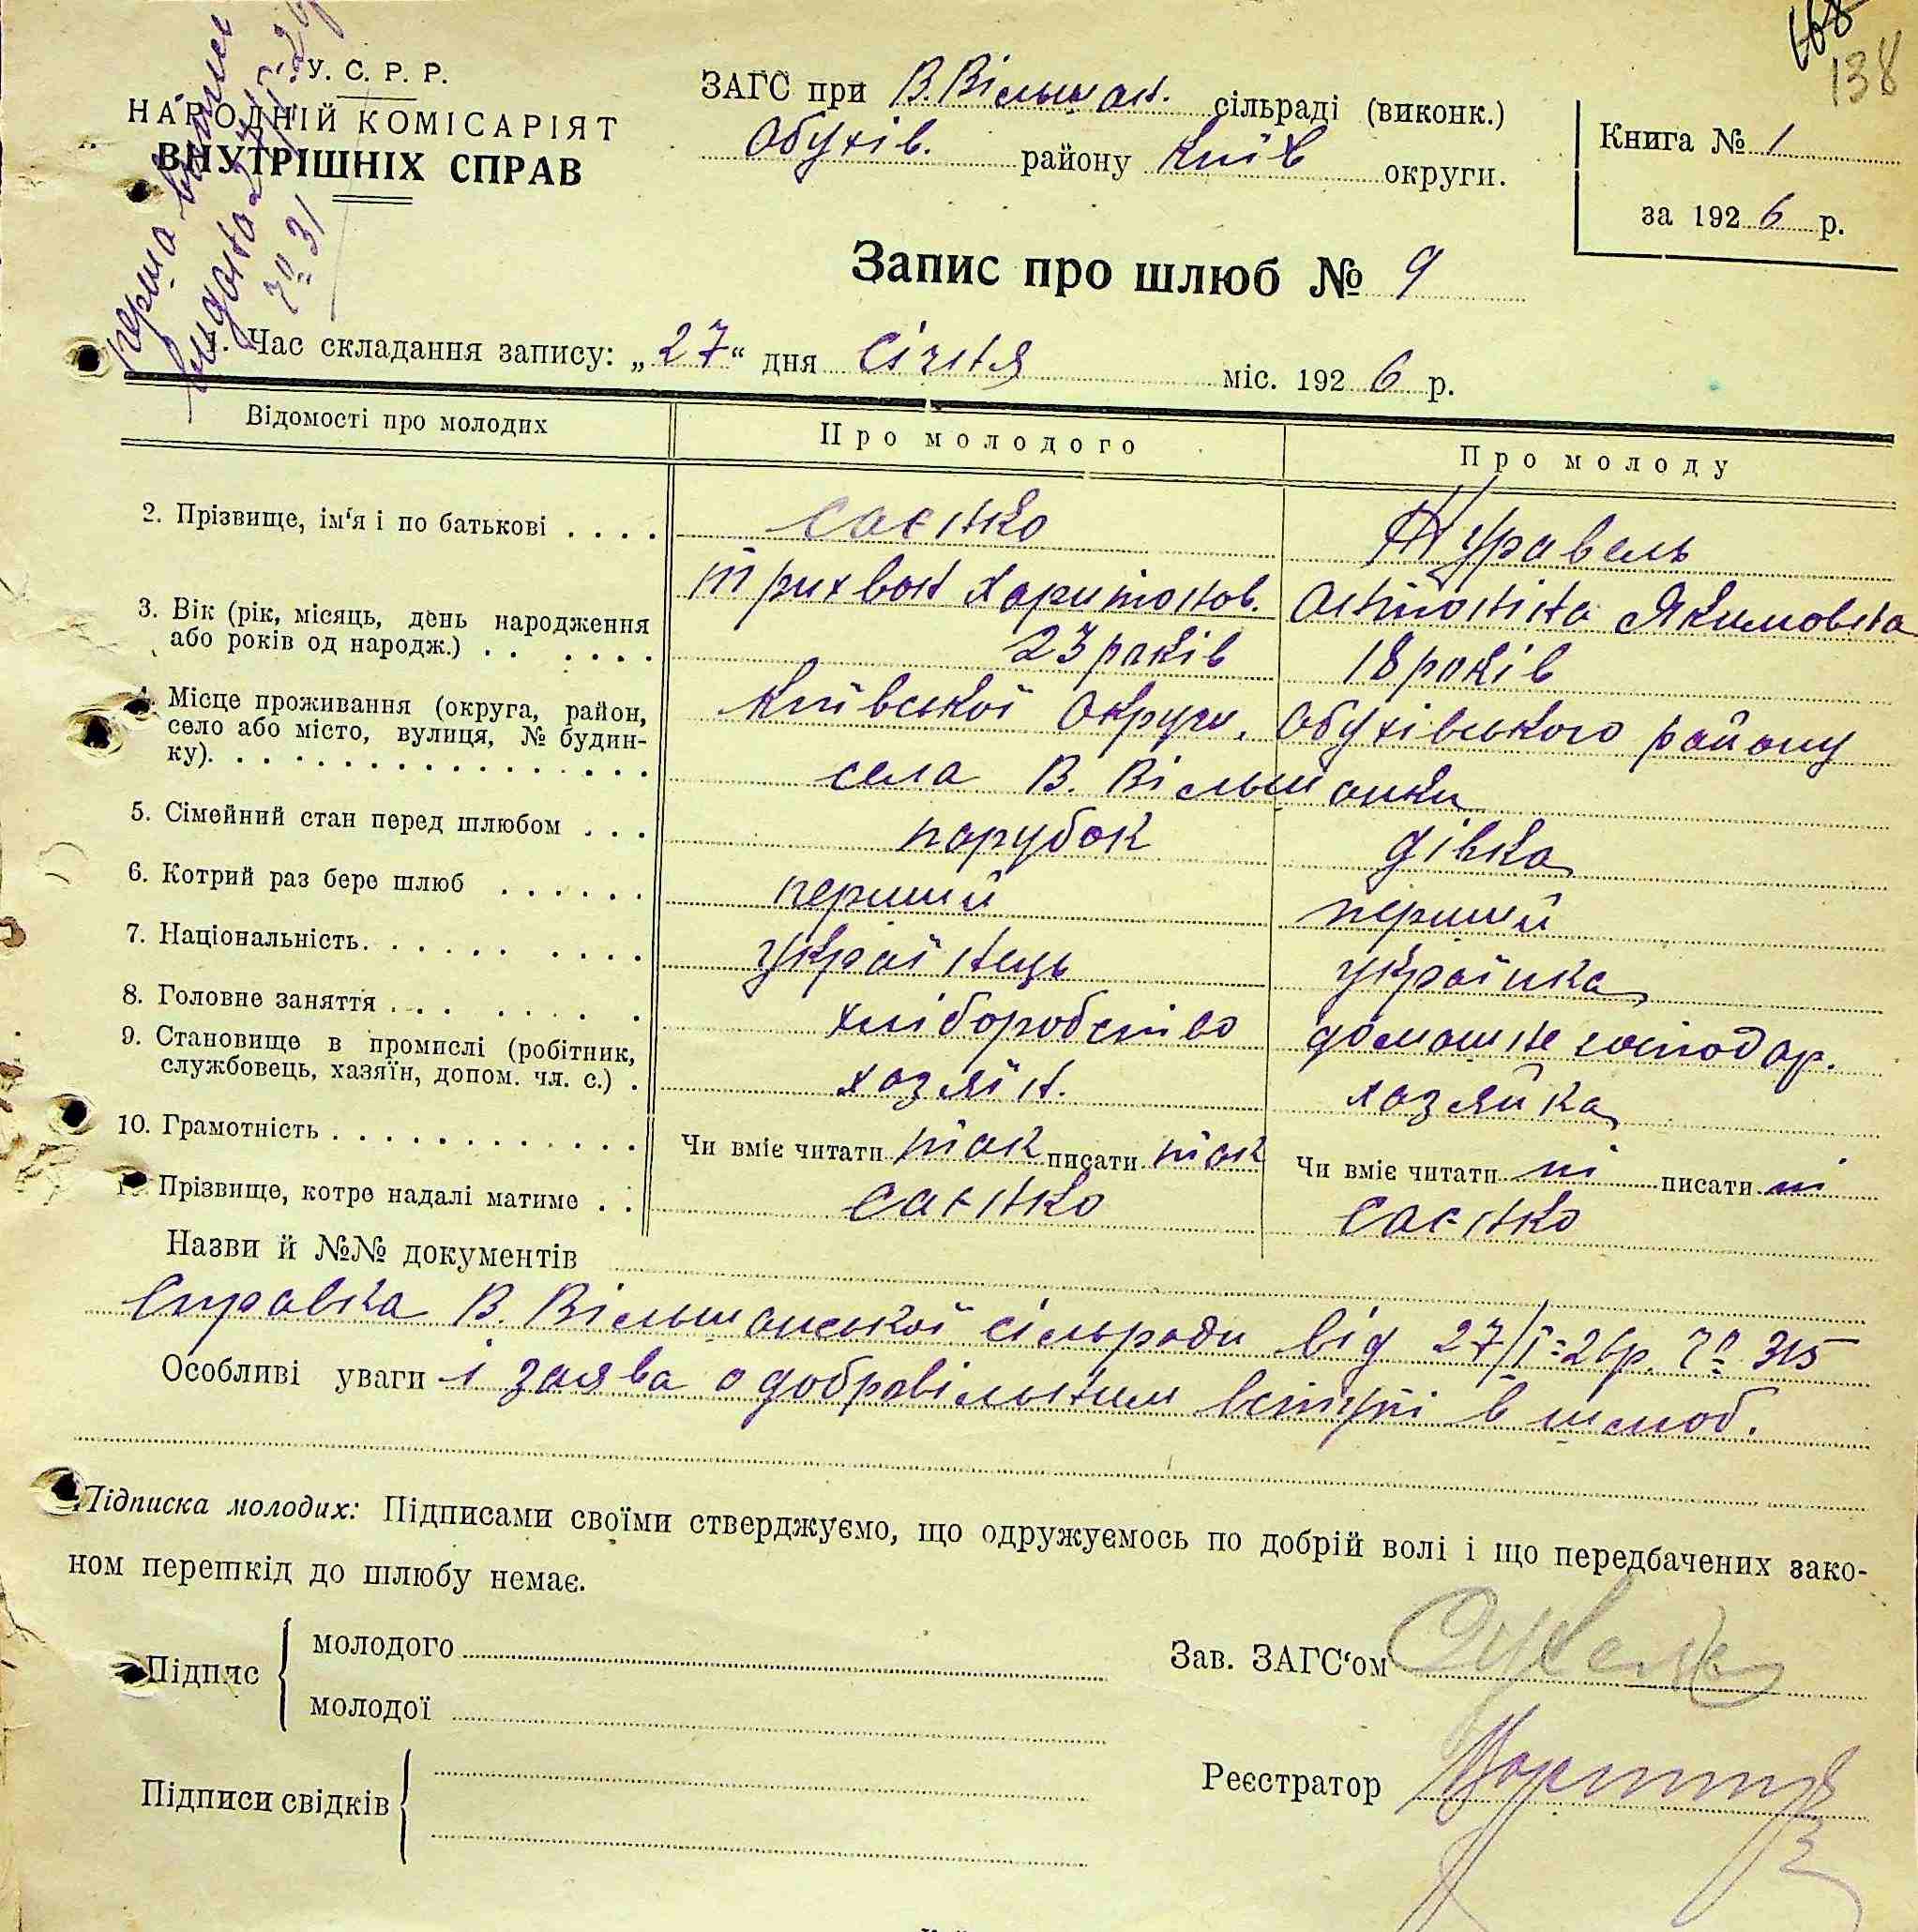 168
138
У. С. Р. Р.
НАРОДНІЙ КОМІСАРІЯТ
ВНУТРІШНІХ СПРАВ
ЗАГС при В. Вільшан. сільраді (виконк.)
Обухів. району Київ округи.
Книга № 1
за 1926 р.
Запис про шлюб № 9
1. Час складання запису: „27“ дня Січня міс. 1926 р.
Відомості про молодих
Про молодого
Про молоду
2. Прізвище, ім‘я і по батькові
Саєнко
Журавель
Трихвон Харитонов.
Антоніна Якимовна
3. Вік (рік, місяць, день народження
або років од народж.)
23 років
18 років
4. Місце проживання (округа, район,
село або місто, вулиця, № будин-
ку)
Київської Округи, Обухівського району
села В. Вільшанки
5. Сімейний стан перед шлюбом
парубок
дівка
6. Котрий раз бере шлюб
перший
перший
7. Національність
Українець
українка
8. Головне заняття
хліборобство
домашне господар.
9. Становище в промислі (робітник,
службовець, хазяїн, допом. чл. с.)
хазяїн.
хазяйка
10. Грамотність
Чи вміє читати так писати так
Чи вміє читати ні писати ні
11. Прізвище, котре надалі матиме
Саєнко
Саєнко
Назви й №№ документів
Справка В. Вільшанської сільради від 27/I-26р. № 315
Особливі уваги і заява о добровільним вступі в шлюб.
Підписка молодих: Підписами своїми стверджуємо, що одружуємось по добрій волі і що передбачених зако-
ном перешкід до шлюбу немає.
Підпис
молодого
молодої
Зав. ЗАГС‘ом
Підписи свідків
Реєстратор